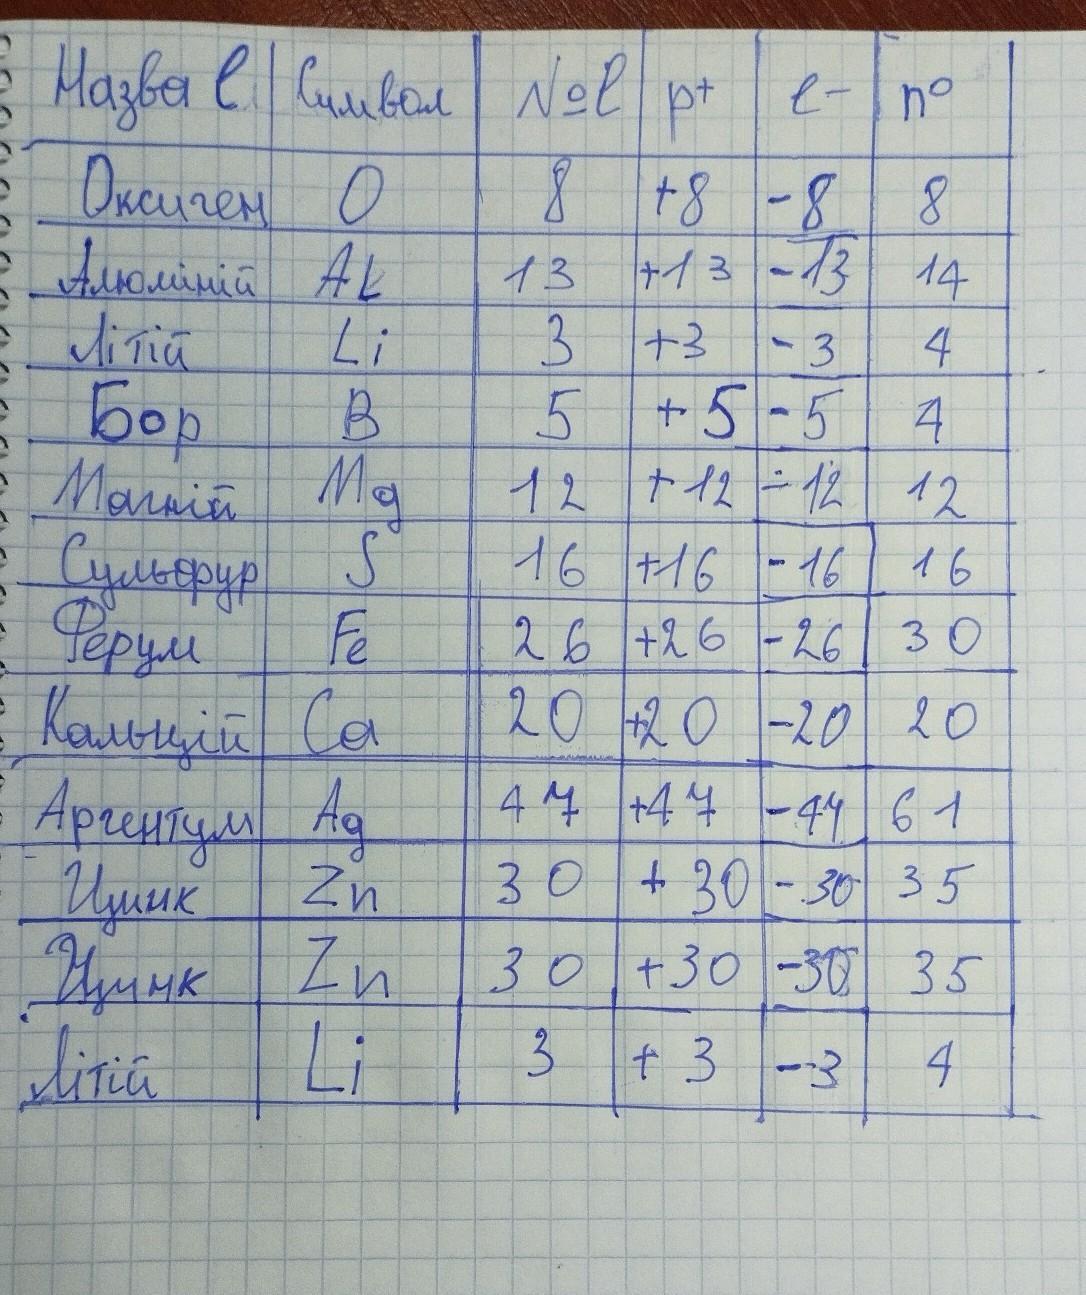 Назва е Символ №е p+ e- n°
Оксиген O 8 +8 -8 8
Алюміній AL 13 +13 -13 14
Літій Li 3 +3 -3 4
Бор B 5 +5 -5 4
Магній Mg 12 +12 -12 12
Сульфур S 16 +16 -16 16
Ферум Fe 26 +26 -26 30
Кальцій Ca 20 +20 -20 20
Аргентум Ag 47 +47 -47 61
Цинк Zn 30 +30 -30 35
Цинк Zn 30 +30 -30 35
Літій Li 3 +3 -3 4